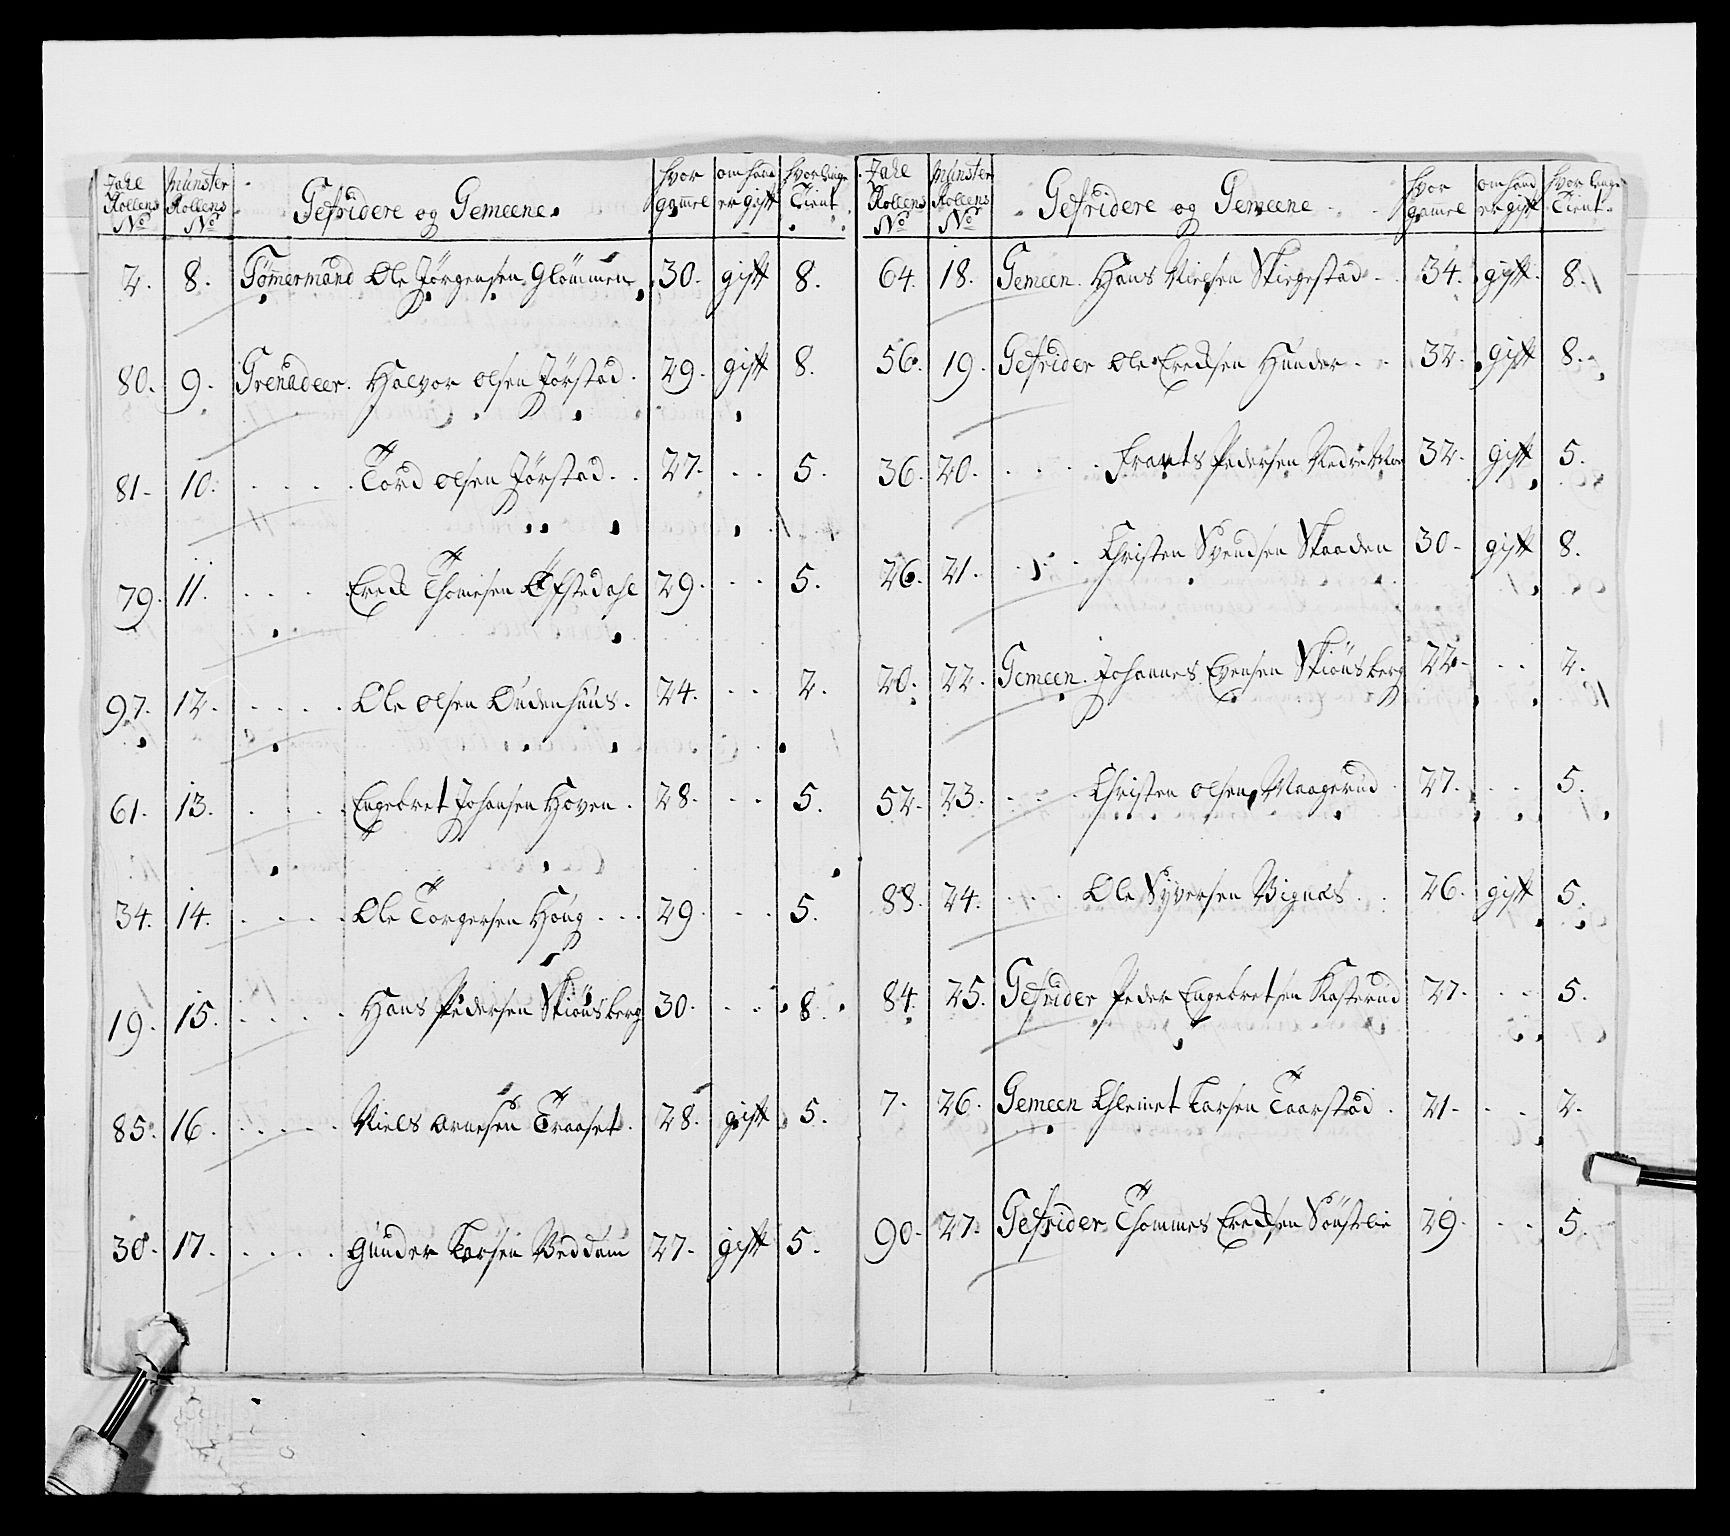 Zahl Rollens No | Münster Rollens No | Gefridere og Gemeene. | hvor gamel | om hand er gift | hvor lenge Tient
2. | 8. | Tömermand Ole Jörgensen Glommen | 30. | gift | 8.
80. | 9. | Grenadeer. Halvor Olsen Jörstad. | 29. | gift | 8.
81. | 10. | . . . . Tord Olsen Jörstad. . | 27. | . . | 5.
79. | 11. | . . . . Erich Thomesen | 29. | . . | 5.
97. | 12. | . . . . Ole Olsen | 24. | . . | 2.
61. | 13. | . . . . Engebret Johansen Hoven. | 28. | . . | 5.
34. | 14. | . . . . Ole Torgersen Houg . . . | 29. | . . | 5.
19. | 15. | . . . . Hans Pedersen Skiönsberg | 30. | . . | 8.
85. | 16. | . . . . Niels Arnesen Traaset. | 28. | gift | 5.
30. | 17. | . . . . Gunder Larsen Weddum | 27. | gift | 5.
Zahl Rollens No | Münster Rollens No | Gefridere og Gemeene | hvor gamel | om hand er gift | hvor lenge Tient.
64. | 18. | Gemeen. Hans Nielsen Skiegestad | 34. | gift. | 8.
56. | 19. | Gefrider Ole Erichsen Hunder | 32. | gift | 8.
36. | 20. | . . . . Frants Pedersen | 32. | gift | 5.
26. | 21. | . . . Christen Svendsen Skaaden | 30. | gift | 8.
20. | 22. | Gemeen. Johannes Evensen Skiönsberg | 22. | . . | 2.
52. | 23. | . . . Christen Olsen Maagerud | 27. | . . | 5.
88. | 24. | . . . Ole Syversen Vignes | 26. | gift | 5.
84. | 25. | Gefrider Peder Engebretsen Kasterud | 27. | . . | 5.
7. | 26. | Gemeen Chlemet Larsen Taarstad. | 21. | . . | 2.
90. | 27. | Gefrider Thommes Erichsen Sönstebie | 29. | . . | 5.